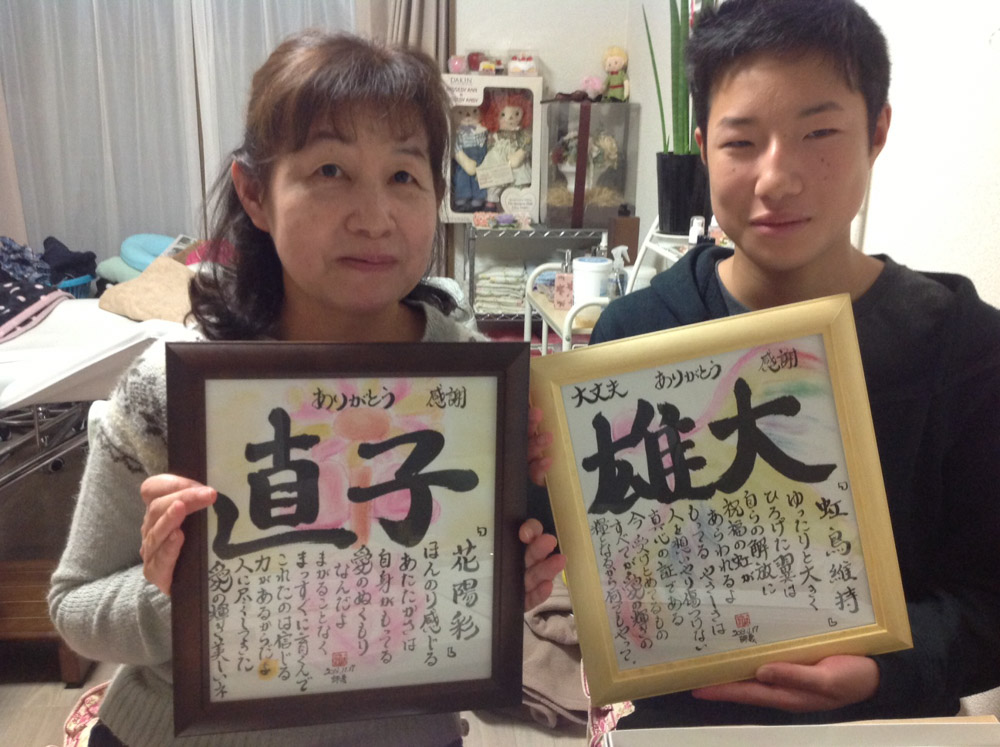 DAKIN
ありがとう 感謝
直子
「花陽彩」
ほんのり感じる
あたたかさは
自身がもってる
愛のぬくもり
なんだよ
まがることなく、
まっすぐに育くんで
これたのは信じる
力があるからだよ
人に尽くしてきた
愛の輝く美しいネ
大丈夫 ありがとう 感謝
雄大
「虹鳥維持」
ゆったりと大きく
ひろげた翼は
自らの解放に
祝福の虹が
あらわれるよ
もってる やさしさは
人を想いやり
真心の証である
今、受けとめてるもの
すべてが愛の